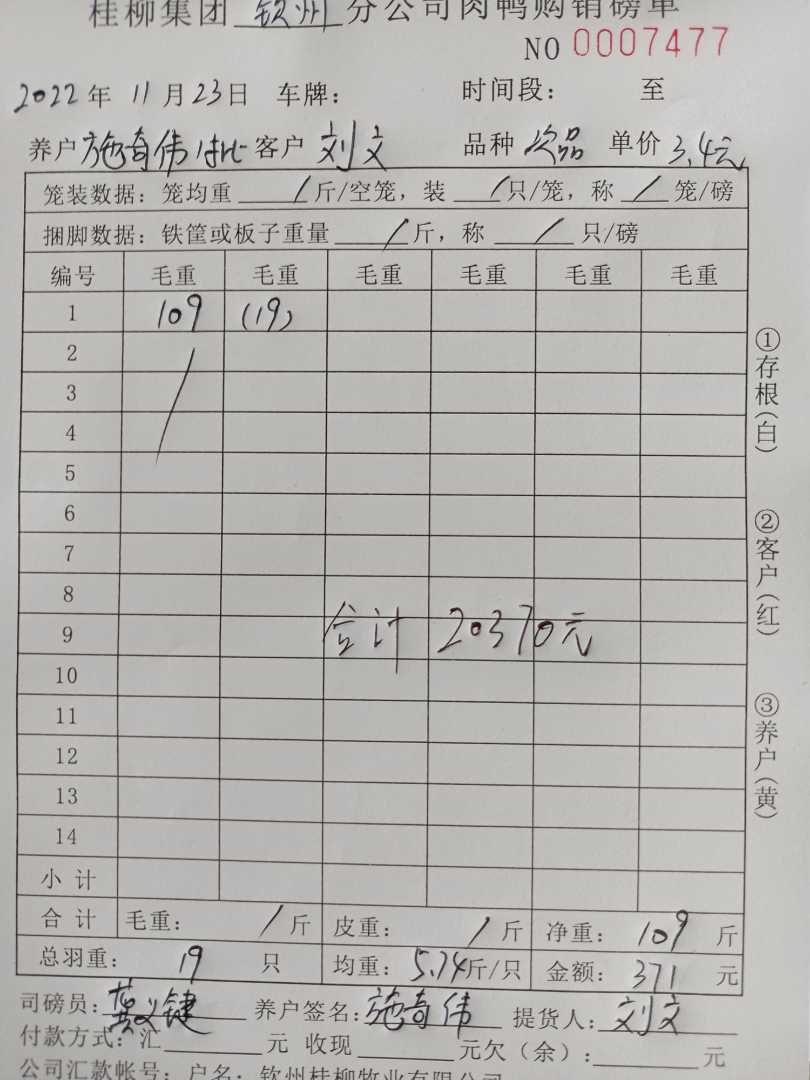 桂柳集团 钦州 分公司肉鸭购销磅单
NO 0007477
2022 年 11 月 23 日 车牌： 时间段： 至
养户 施奇伟 客户 刘文 品种 次品 单价 3.4元
笼装数据：笼均重 / 斤/空笼，装 / 只/笼，称 / 笼/磅
捆脚数据：铁筐或板子重量 / 斤，称 / 只/磅
编号 毛重 毛重 毛重 毛重 毛重 毛重
1 109 (19)
2
3
4
5
6
7
8
9 合计 20370元
10
11
12
13
14
小计
合计 毛重： / 斤 皮重： / 斤 净重： 109 斤
总羽重： 19 只 均重： 5.74 斤/只 金额： 371 元
司磅员： 龚义键 养户签名： 施奇伟 提货人： 刘文
付款方式：汇 元 收现 元欠（余）： 元
公司汇款帐号：户名：钦州桂柳牧业有限公司
①存根(白)
②客户(红)
③养户(黄)